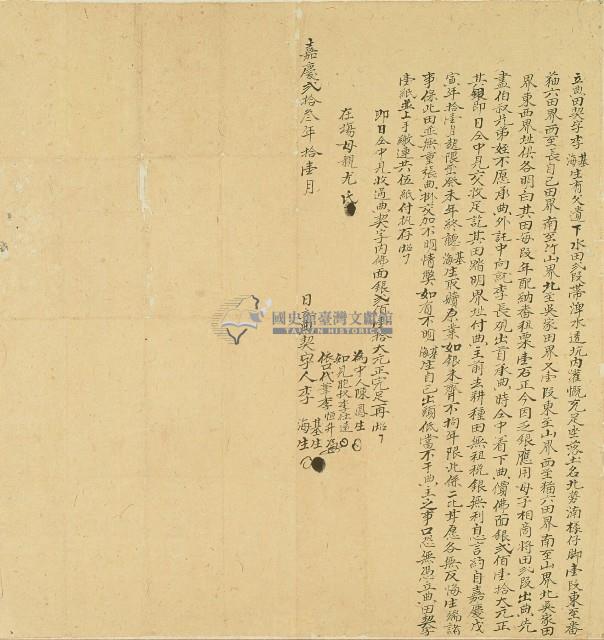 立典田契字李基生海生有父遺下水田弍段帶埤水透坑內灌溉充足坐落土名北勢湳檨仔脚壹段東至番
猫六田界西至長自己田界南至竹山界北至吳家田界又壹段東至山界西至猫六田界南至山界北吳家田
界東西界址俱各明白其田每段年配納番租粟壹石正今因乏銀應用母子相商將田弍段出典先
盡伯叔兄弟姪不愿承典外託中向就李長 出首承典時仝中看下典價佛面銀弍佰壹拾大元正
其銀即日仝中見交收足訖其田踏明界址付典主前去耕種田無租稅銀無利息言約自嘉慶戊
寅年拾壹月起限至癸未年終聽基生海生取贖原業如銀未齊不拘年限此係二比甘愿各無反悔生端諸
事保此田並無重張典掛交加不明情弊如有不明基生海生自己出頭抵當不干典主之事口恐無憑立典田契字
壹紙並上手繳連共伍紙付執存炤了
即日仝中見收過典契字內佛面銀弍佰壹拾大元正完足再炤了
在塲母親尤氏
為中人陳鳳生
知見胞叔李
依口代筆李恒升
嘉慶弍拾叁年拾壹月 日立典契字人李基生海生
國史館臺灣文獻館
TAIWAN HISTORICA